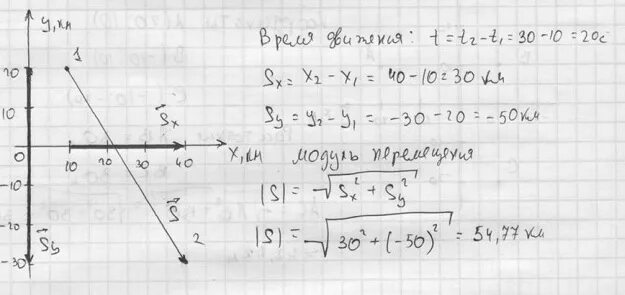 y, км
20
10
0
-10
-20
-30
10 20 30 40
x, км
1
2
Sx
S
Sy
Время движения: t = t₂ - t₁ = 30 - 10 = 20с
Sx = x₂ - x₁ = 40 - 10 = 30 км
Sy = y₂ - y₁ = -30 - 20 = -50 км
модуль перемещения
|S| = √(Sx² + Sy²)
|S| = √(30² + (-50)²) = 54,77 км